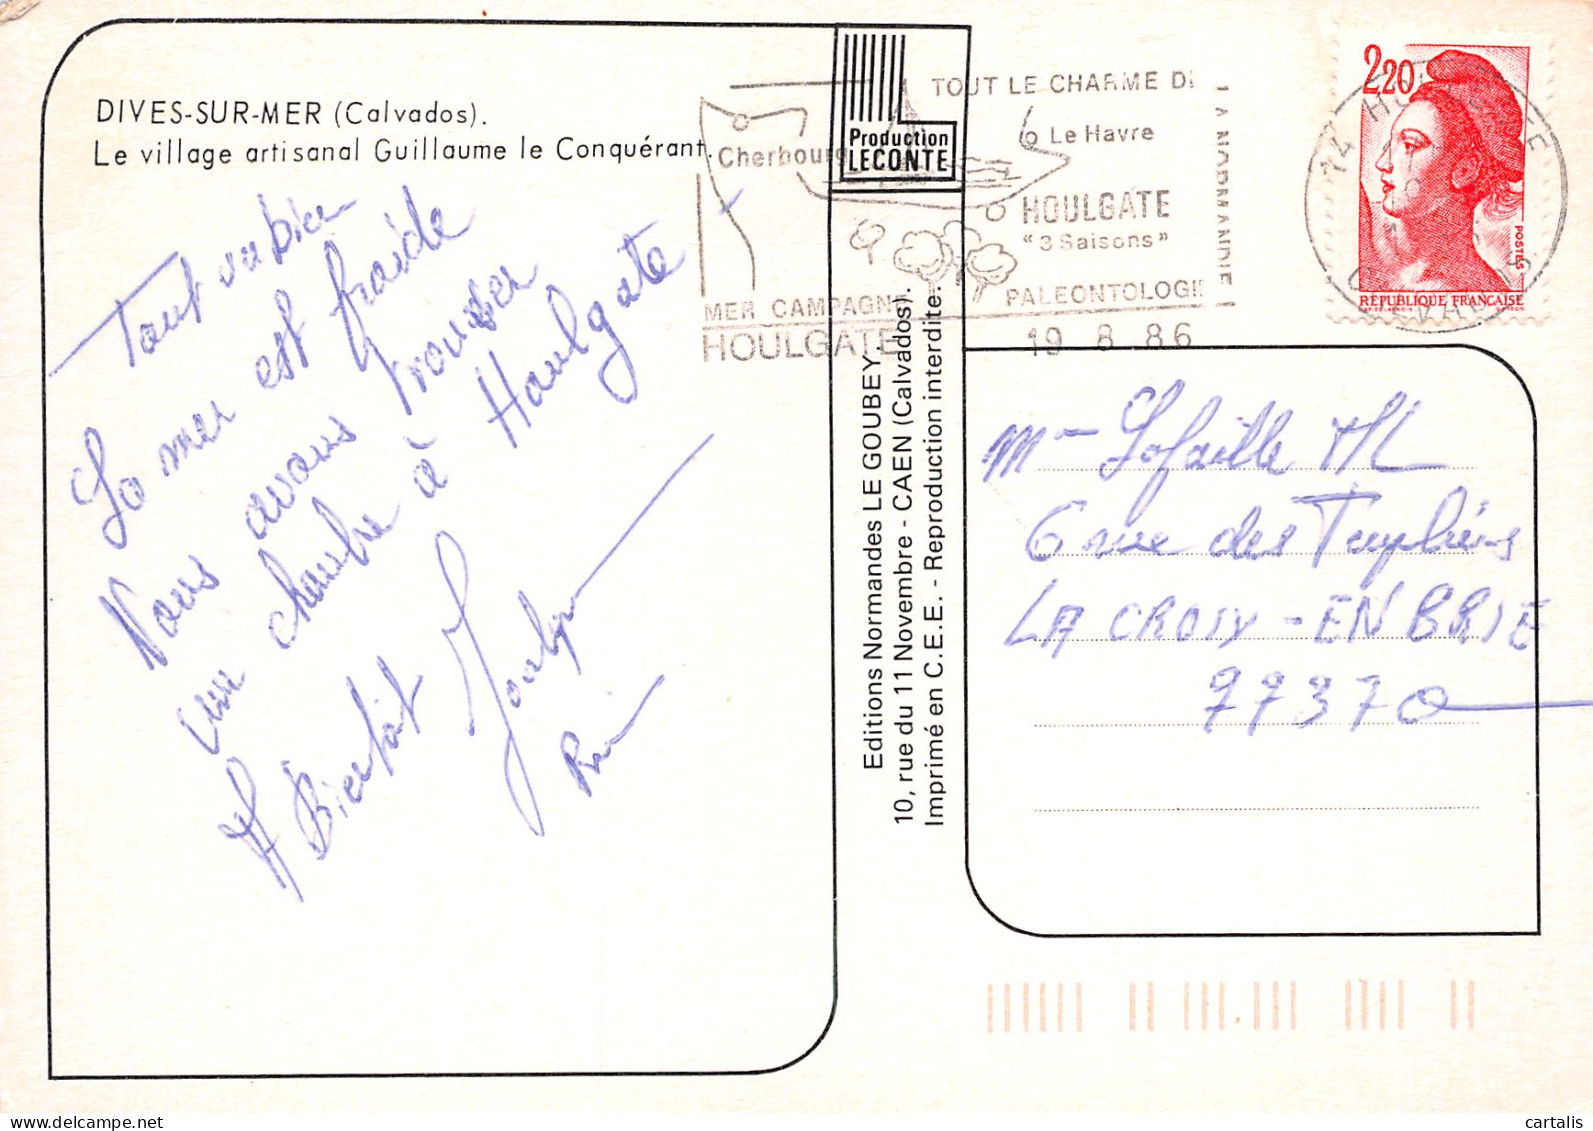 DIVES-SUR-MER (Calvados).
Le village artisanal Guillaume le Conquérant.
Tout va bien
La mer est froide
Nous avons trouver
une chambre à Houlgate
A Bientôt
Production
LECONTE
Editions Normandes LE GOUBEY.
10, rue du 11 Novembre - CAEN (Calvados).
Imprimé en C.E.E. - Reproduction interdite.
TOUT LE CHARME DE
LA NORMANDIE
Le Havre
Cherbourg
HOULGATE
"3 Saisons"
MER CAMPAGNE
PALEONTOLOGIE
HOULGATE
19 8 86
14 HOULGATE
CALVADOS
2,20
POSTES
RÉPUBLIQUE FRANÇAISE
Mme Lafaille
6 rue des Templiers
LA CROIX-EN BRIE
77370
cartalis